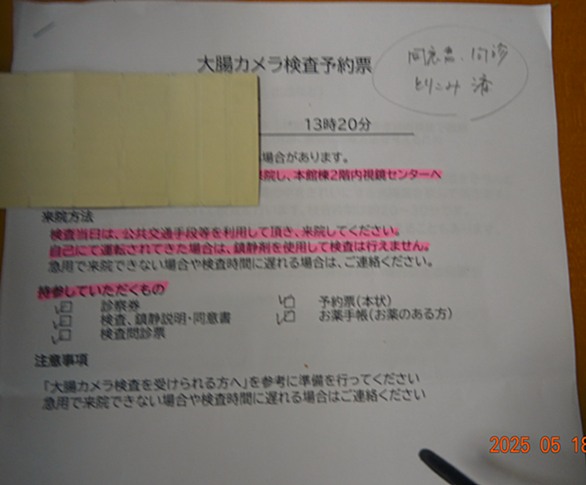 大腸カメラ検査予約票
同意書、問診
とりこみ 済
13時20分
場合があります。
院し、本館棟2階内視鏡センターへ
来院方法
検査当日は、公共交通手段等を利用して頂き、来院してください。
自己にて運転されてきた場合は、鎮静剤を使用して検査は行えません。
急用で来院できない場合や検査時間に遅れる場合は、ご連絡ください。
持参していただくもの
診察券 予約票(本状)
検査、鎮静説明・同意書 お薬手帳(お薬のある方)
検査問診票
注意事項
「大腸カメラ検査を受けられる方へ」を参考に準備を行ってください
急用で来院できない場合や検査時間に遅れる場合はご連絡ください
2025 05 18